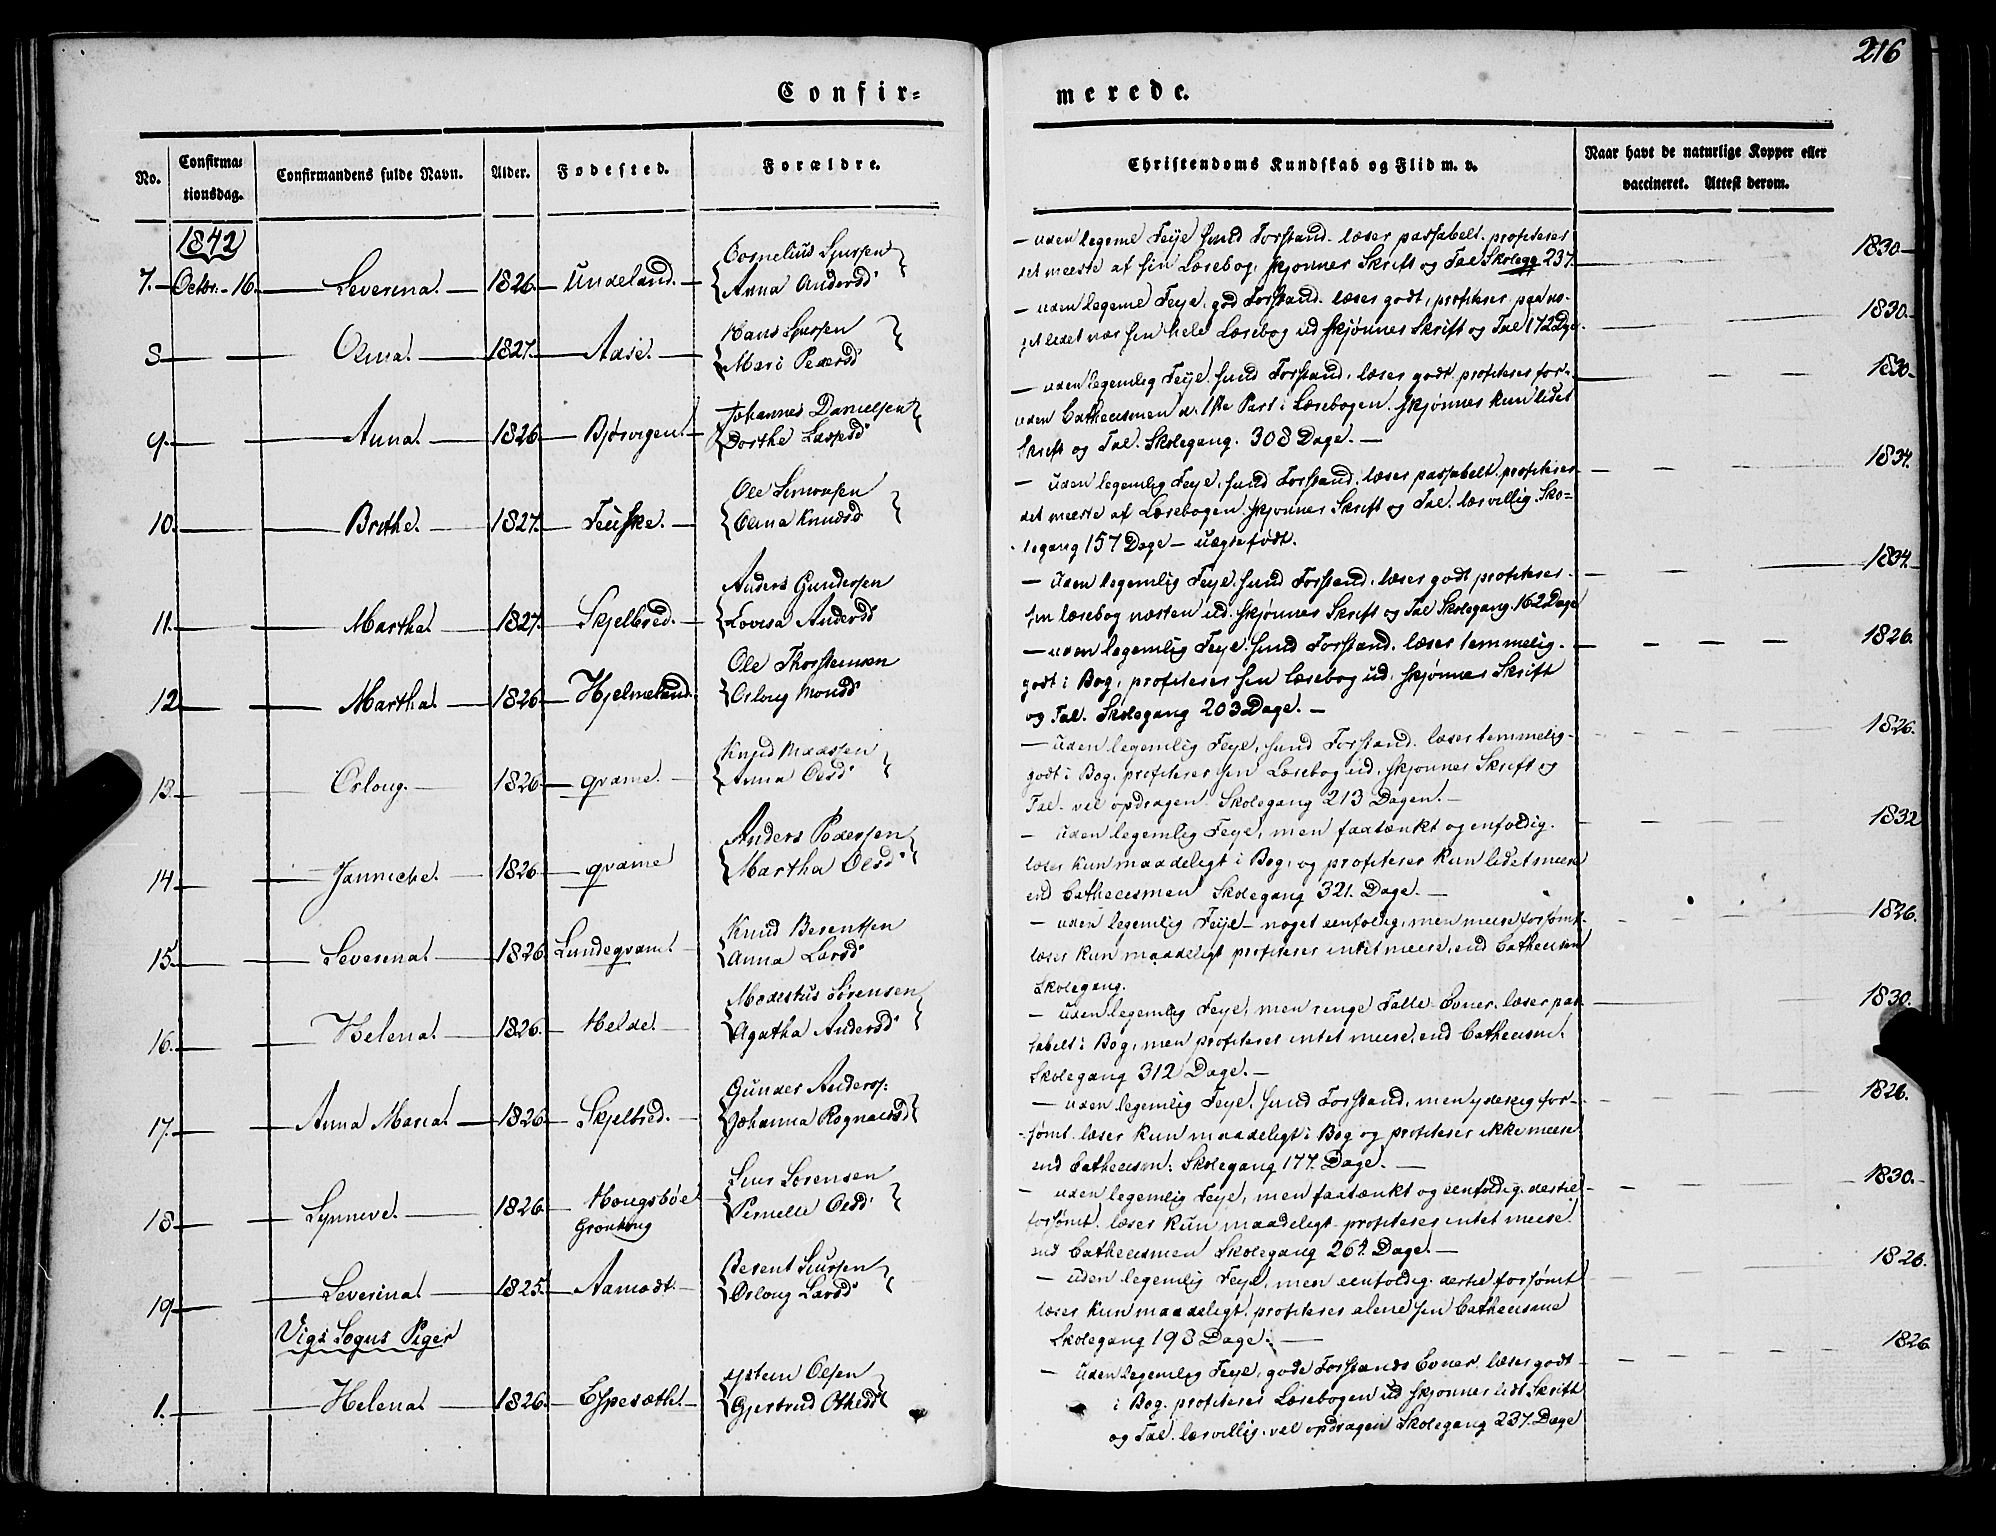 216
Confir-
merede.
No.
Confirma-
tionsdag.
Confirmandens fulde Navn.
Alder.
Fødested.
Forældre.
Christendoms Kundskab og Flid m. v.
Naar havt de naturlige Kopper eller
vaccineret. Attest derom.
1842
7. Octbr. 16. Severina. 1826. Undeland. Cornelius Sjursen
Anna Andersd
— uden legeme Feye sund Forstand. læser passabelt. profiterer
det meeste af sin Læsebog, skjønner Skrift og Tal Skolegg 237. 1830
8 Olina. 1827. Aase. Hans Sjursen
Mari Pedersd
— uden legeme Feye, god Forstand. læser godt, profiterer paa no-
get ledet nær sin hele Læsebog ud skjønner Skrift og Tal 172 Dge 1830.
9. Anna. 1826. Bjørvigen. Johannes Danielsen
Dorthe Caspersd
— uden legemlig Feye. sund Forstand, læser godt profiterer for-
uden Cathecismen d. 1ste Part i Læsebogen. skjønner kun lidet
Skrift og Tal. Skolegang. 308 Dage. — 1830
10. Brithe. 1827. Feuske. Ole Simonsen
Olina Knudsd
— uden legemlig Feye, sund Forstand. læser passabelt profiterer
det meeste af Læsebogen. skjønner Skrift og Tal. lærvillig. Sko=
legang 157 Dage — uægtefødt. 1834.
11. Martha. 1827. Skjelbred. Anders Gundersen
Lovisa Andersd
— uden legemlig Feye. sund Forstand. læser godt profiterer
sin læsebog næsten ud. skjønner Skrift og Tal Skolegang 162 Dage 1834.
12 Martha. 1826 Hjelmeland. Ole Thorstensen
Orloug Monsd
— uden legemlig Feye. sund Forstand. læser temmelig
godt i Bog, profiterer sin læsebog ud, skjønner Skrift
og Tal. Skolegang 203 Dage. — 1826.
13. Orloug. 1826 qvame. Knud Madssen
Anna Olsd
— uden legemlig Feye, sund Forstand. læser temmelig
godt i Bog, profiterer sin Læsebog ud, skjønner Skrift og
Tal. vel opdragen Skolegang 213 Dagen. — 1826.
14. Jannicke. 1826 qvame Anders Pedersen
Martha Olsd
— uden legemlig Feye, men faatænkt og enfoldig.
læser kun maadeligt i Bog, og profiterer kun lidet meere
end Cathecismen Skolegang 321. Dage. — 1832
15. Severina. 1826 Lundeqvam. Knud Berentsen
Anna Larsd
— uden legemlig Feye — noget eenfoldig, men meere forsømt.
læser kun maadeligt profiterer intet meere, end Cathecism
Skolegang. 1826.
16. Helena. 1826. Helde. Modestus Sørensen
Agatha Andersd
— uden legemlig Feye, men ringe Fatte Evner. læser pas-
sabelt i Bog, men profiterer intet meere, end Cathecism.
Skolegang 312 Dage. — 1830.
17. Anna Maria. 1826. Skjelbred. Gunder Anderss:
Johanna Rognaldsd
— uden legemlig Feye, sund Forstand, men yderlig for-
sømt læser kun maadeligt i Bog og profiterer ikke meere
end Cathecism: Skolegang 177. Dage. — 1826.
18 Synneve. 1826. Hougsbøe
Grønheng Siur Sørensen
Pernelle Olsd
— uden legemlig Feye, men faatænkt og eenfoldig. dertil
forsømt. læser kun maadeligt profiterer intet meere.
end Cathecismen Skolegang 264. Dage. — 1830.
19 Severina. 1825. Aamodt. Berent Siursen
Orloug Larsd
— uden legemlig Feye, men eenfoldig. dertil forsømt
læser kun maadeligt, profiterer alene sin Cathecisme
Skolegang 198 Dage. — 1826.
Vigs Sogns Piger
1. Helena. 1826. Espesæth. Østein Olsen
Gjertrud Othesd
— uden legemlig Feye, gode Forstands Evner, læser godt
i Bog. profiterer Læsebogen ud skjønner lidt Skrift
og Tal. lærvillig. vel opdragen Skolegang 237. Dage 1826